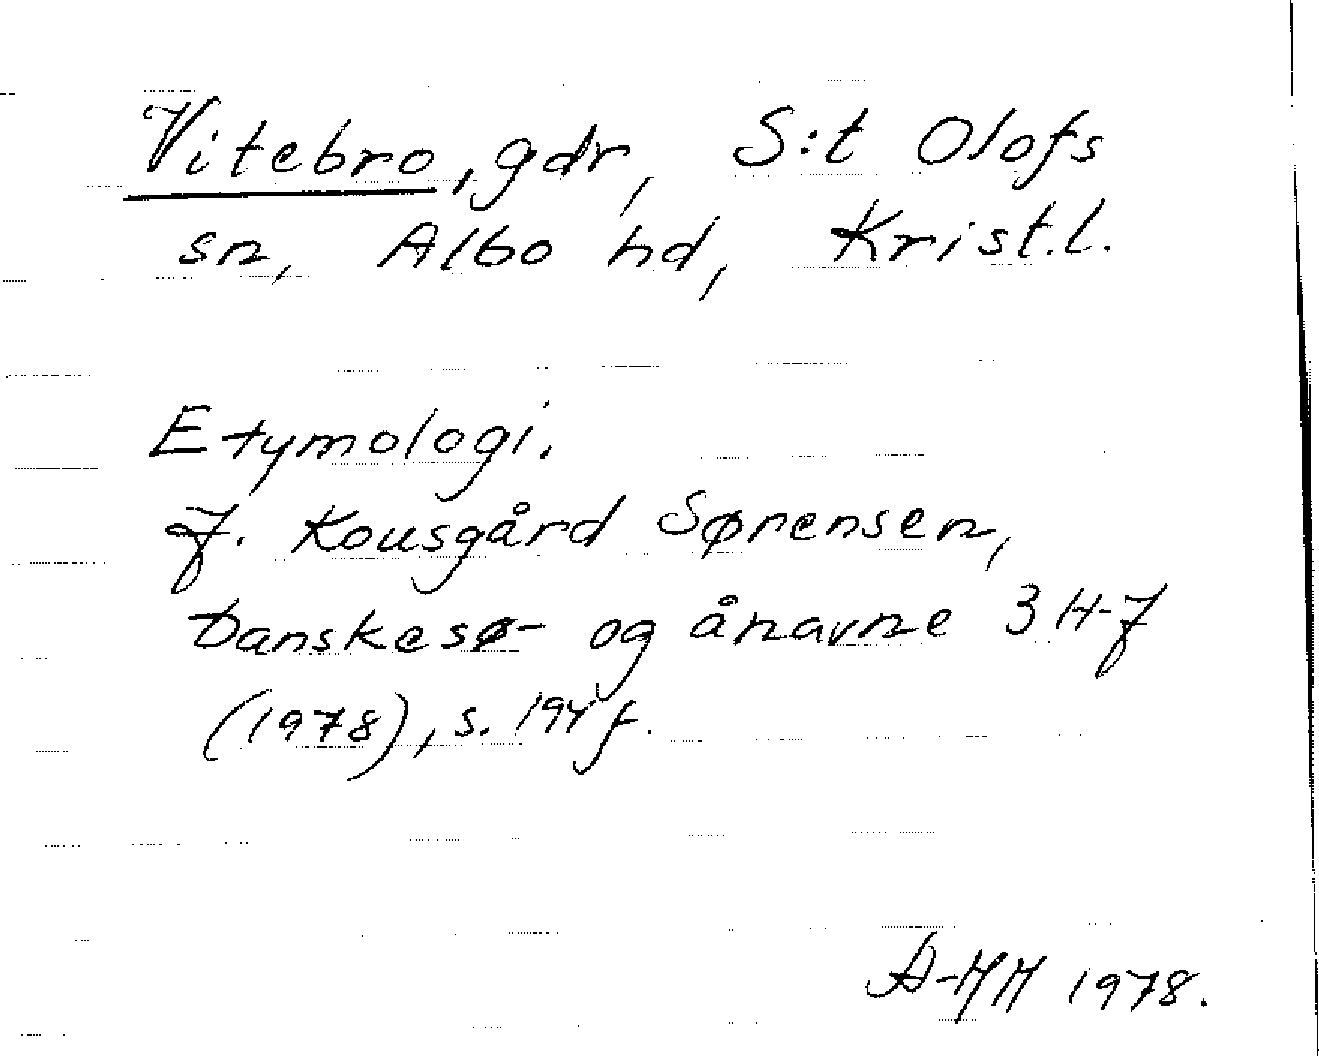 Vitebro, gdr, S:t Olofs
sn, Albo hd, Krist.l.
Etymologi.
J. Kousgård Sørensen,
Danske sø- og ånavne 3 H-J
(1978), s. 194 f.
1978.